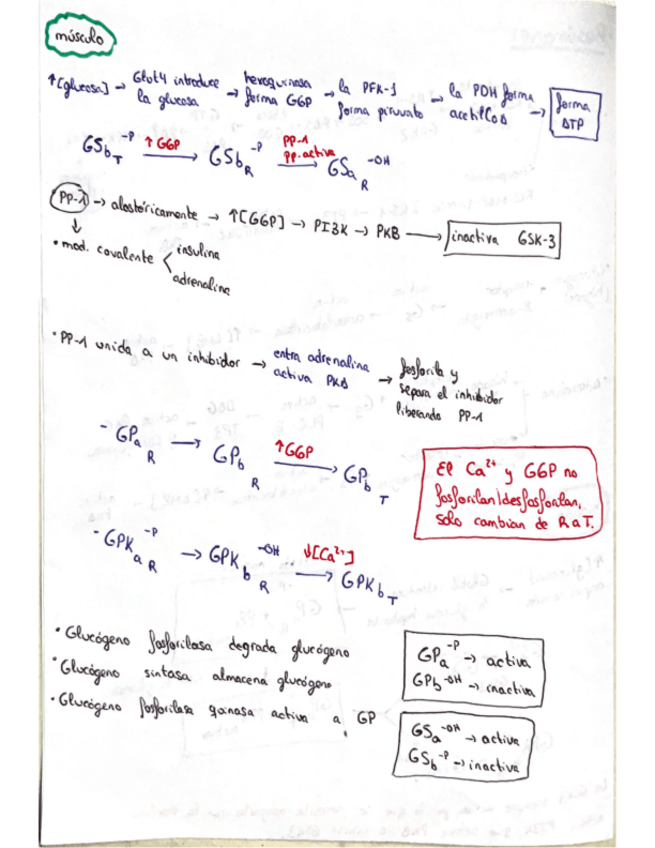 músculo
↑[glucosa] → Glut4 introduce la glucosa → hexoquinasa forma G6P → la PFK-1 forma piruvato → la PDH forma acetilCoA → forma ATP
GSb T -P → ↑G6P → GSb R -P → PP-1 PP.activa → GSa R -OH
PP-1 → alostéricamente → ↑[G6P] → PI3K → PKB → inactiva GSK-3
↓
• mod. covalente < insulina
adrenalina
• PP-1 unida a un inhibidor → entra adrenalina activa PKA → fosforila y separa el inhibidor liberando PP-1
- GPa R → GPb R → ↑G6P → GPb T
El Ca²⁺ y G6P no
fosforilan/desfosforilan,
solo cambian de R a T.
- GPKa R -P → GPKb R -OH → ↓[Ca²⁺] → GPKb T
• Glucógeno fosforilasa degrada glucógeno
• Glucógeno sintasa almacena glucógeno
• Glucógeno fosforilasa quinasa activa a GP
GPa -P → activa
GPb -OH → inactiva
GSa -OH → activa
GSb -P → inactiva